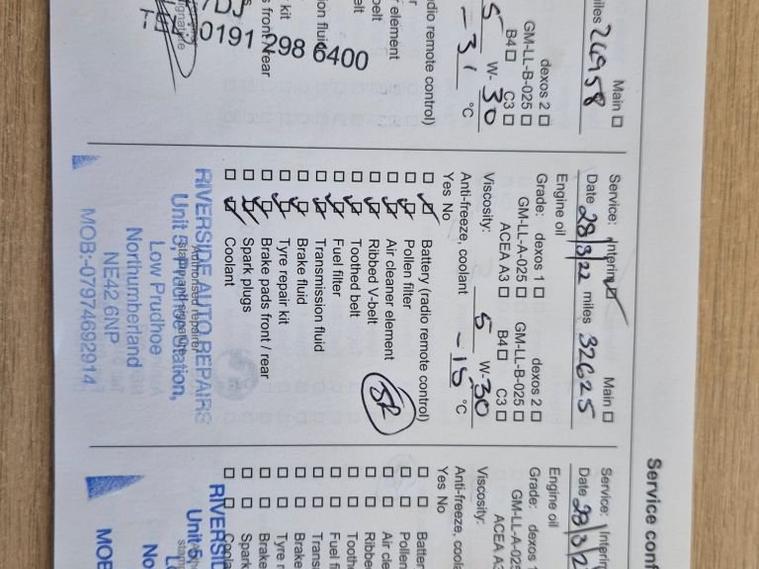 miles 26958
Main ☐
dexos 2 ☐
GM-LL-B-025 ☐
B4 ☐ C3 ☐
5 W-30
-31 °C
(radio remote control)
element
belt
belt
fluid
kit
front/rear
0191 298 6400
Service: Interim ☑ Main ☐
Date 28/3/22 miles 32625
Engine oil
Grade: dexos 1 ☐ dexos 2 ☐
GM-LL-A-025 ☐ GM-LL-B-025 ☐
ACEA A3 ☐ B4 ☐ C3 ☐
Viscosity: 5 W-30
Anti-freeze, coolant -15 °C
Yes No
☐ ☑ Battery (radio remote control)
☐ ☑ Pollen filter
☐ ☑ Air cleaner element
☐ ☑ Ribbed V-belt
☐ ☑ Toothed belt
☐ ☑ Fuel filter
☐ ☑ Transmission fluid
☐ ☑ Brake fluid
☐ ☑ Tyre repair kit
☐ ☑ Brake pads front / rear
☐ ☑ Spark plugs
☐ ☑ Coolant
Authorised repairer
RIVERSIDE AUTO REPAIRS
Unit 5, Station,
Low Prudhoe
Northumberland
NE42 6NP
MOB:-07974692914
Service conf
Service: Interim
Date 28/3/2
Engine oil
Grade: dexos 1
GM-LL-A-025
ACEA A3
Viscosity:
Anti-freeze, coola
Yes No
☐ ☐ Batter
☐ ☐ Pollen
☐ ☐ Air cle
☐ ☐ Ribbe
☐ ☐ Tooth
☐ ☐ Fuel f
☐ ☐ Trans
☐ ☐ Brake
☐ ☐ Tyre r
☐ ☐ Brake
☐ ☐ Spark
☐ ☐ Coola
RIVERSID
Unit 5
No
MOB